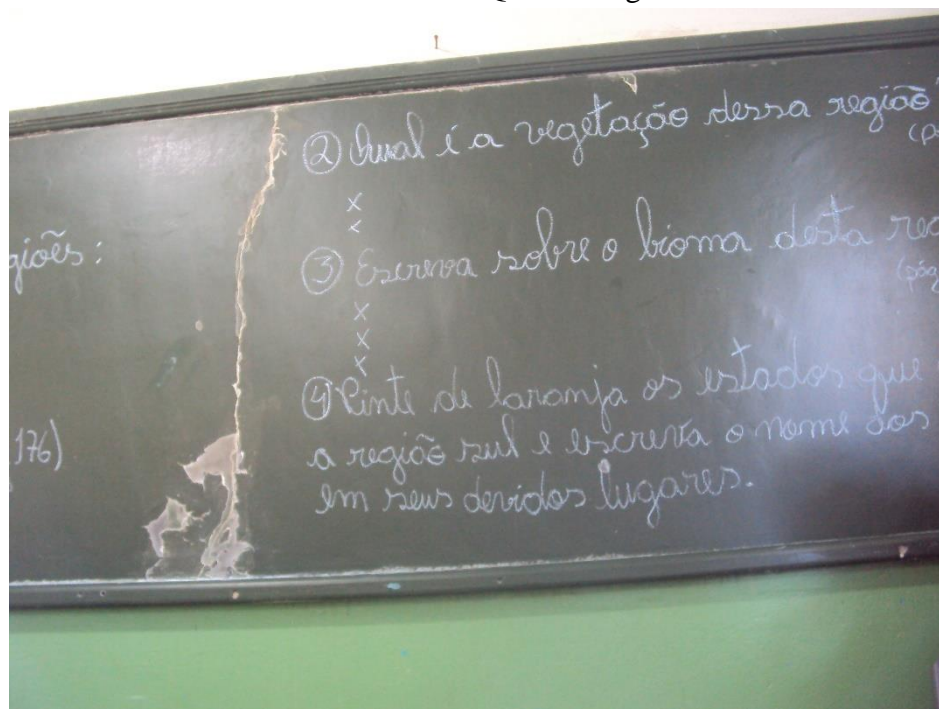 giões:
176)
② Qual é a vegetação dessa região
(p
x
x
③ Escreva sobre o bioma desta reg
(pág
x
x
x
④ Pinte de laranja os estados que
a região sul e escreva o nome dos
em seus devidos lugares.